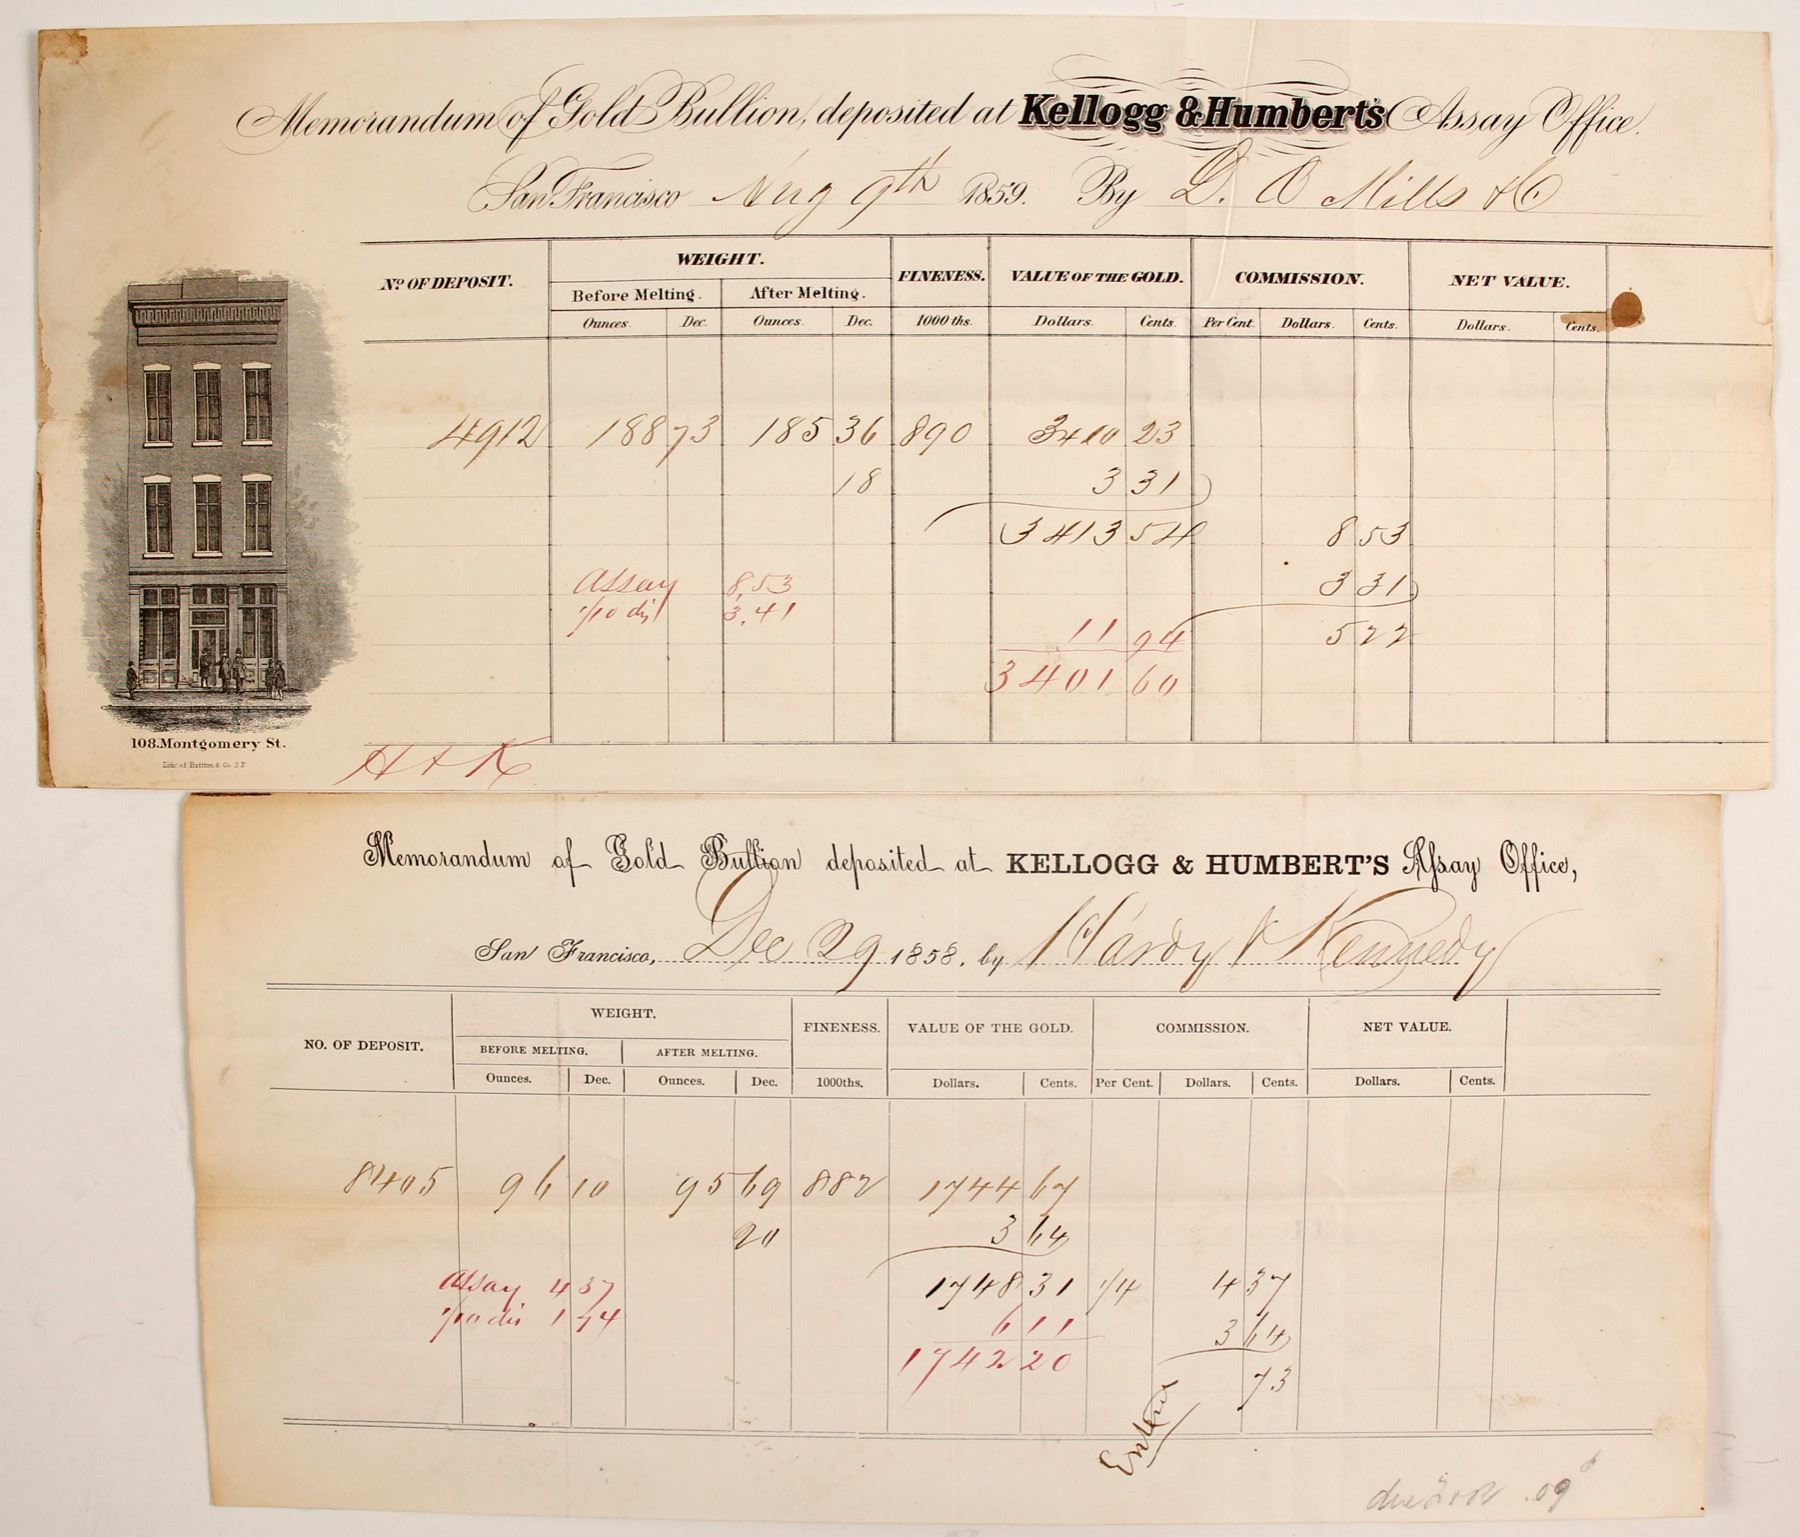 Memorandum of Gold Bullion, deposited at Kellogg & Humbert's Assay Office.
San Francisco Aug 9th 1859. By D. O Mills & Co
No. OF DEPOSIT. WEIGHT. FINENESS. VALUE OF THE GOLD. COMMISSION. NET VALUE.
Before Melting. After Melting.
Ounces. Dec. Ounces. Dec. 1000 ths. Dollars. Cents. Per Cent. Dollars. Cents. Dollars. Cents.
4912 188 73 185 36 890 3410 23
18 3 31
3413 54 8 53
Assay 8,53 3 31
1/10 dis 3,41
11 94 5 22
3401 60
108. Montgomery St.
Lith. of Britton & Co. S.F.
H & K
Memorandum of Gold Bullion deposited at KELLOGG & HUMBERT'S Assay Office,
San Francisco, Dec 29 1858. by Hardy & Kennedy
NO. OF DEPOSIT. WEIGHT. FINENESS. VALUE OF THE GOLD. COMMISSION. NET VALUE.
BEFORE MELTING. AFTER MELTING.
Ounces. Dec. Ounces. Dec. 1000ths. Dollars. Cents. Per Cent. Dollars. Cents. Dollars. Cents.
8405 96 10 95 69 882 1744 67
20 3 64
Assay 4 37 1748 31 1/4 4 37
1/10 dis 1 74 6 11 3 64
1742 20 73
Entered
.09